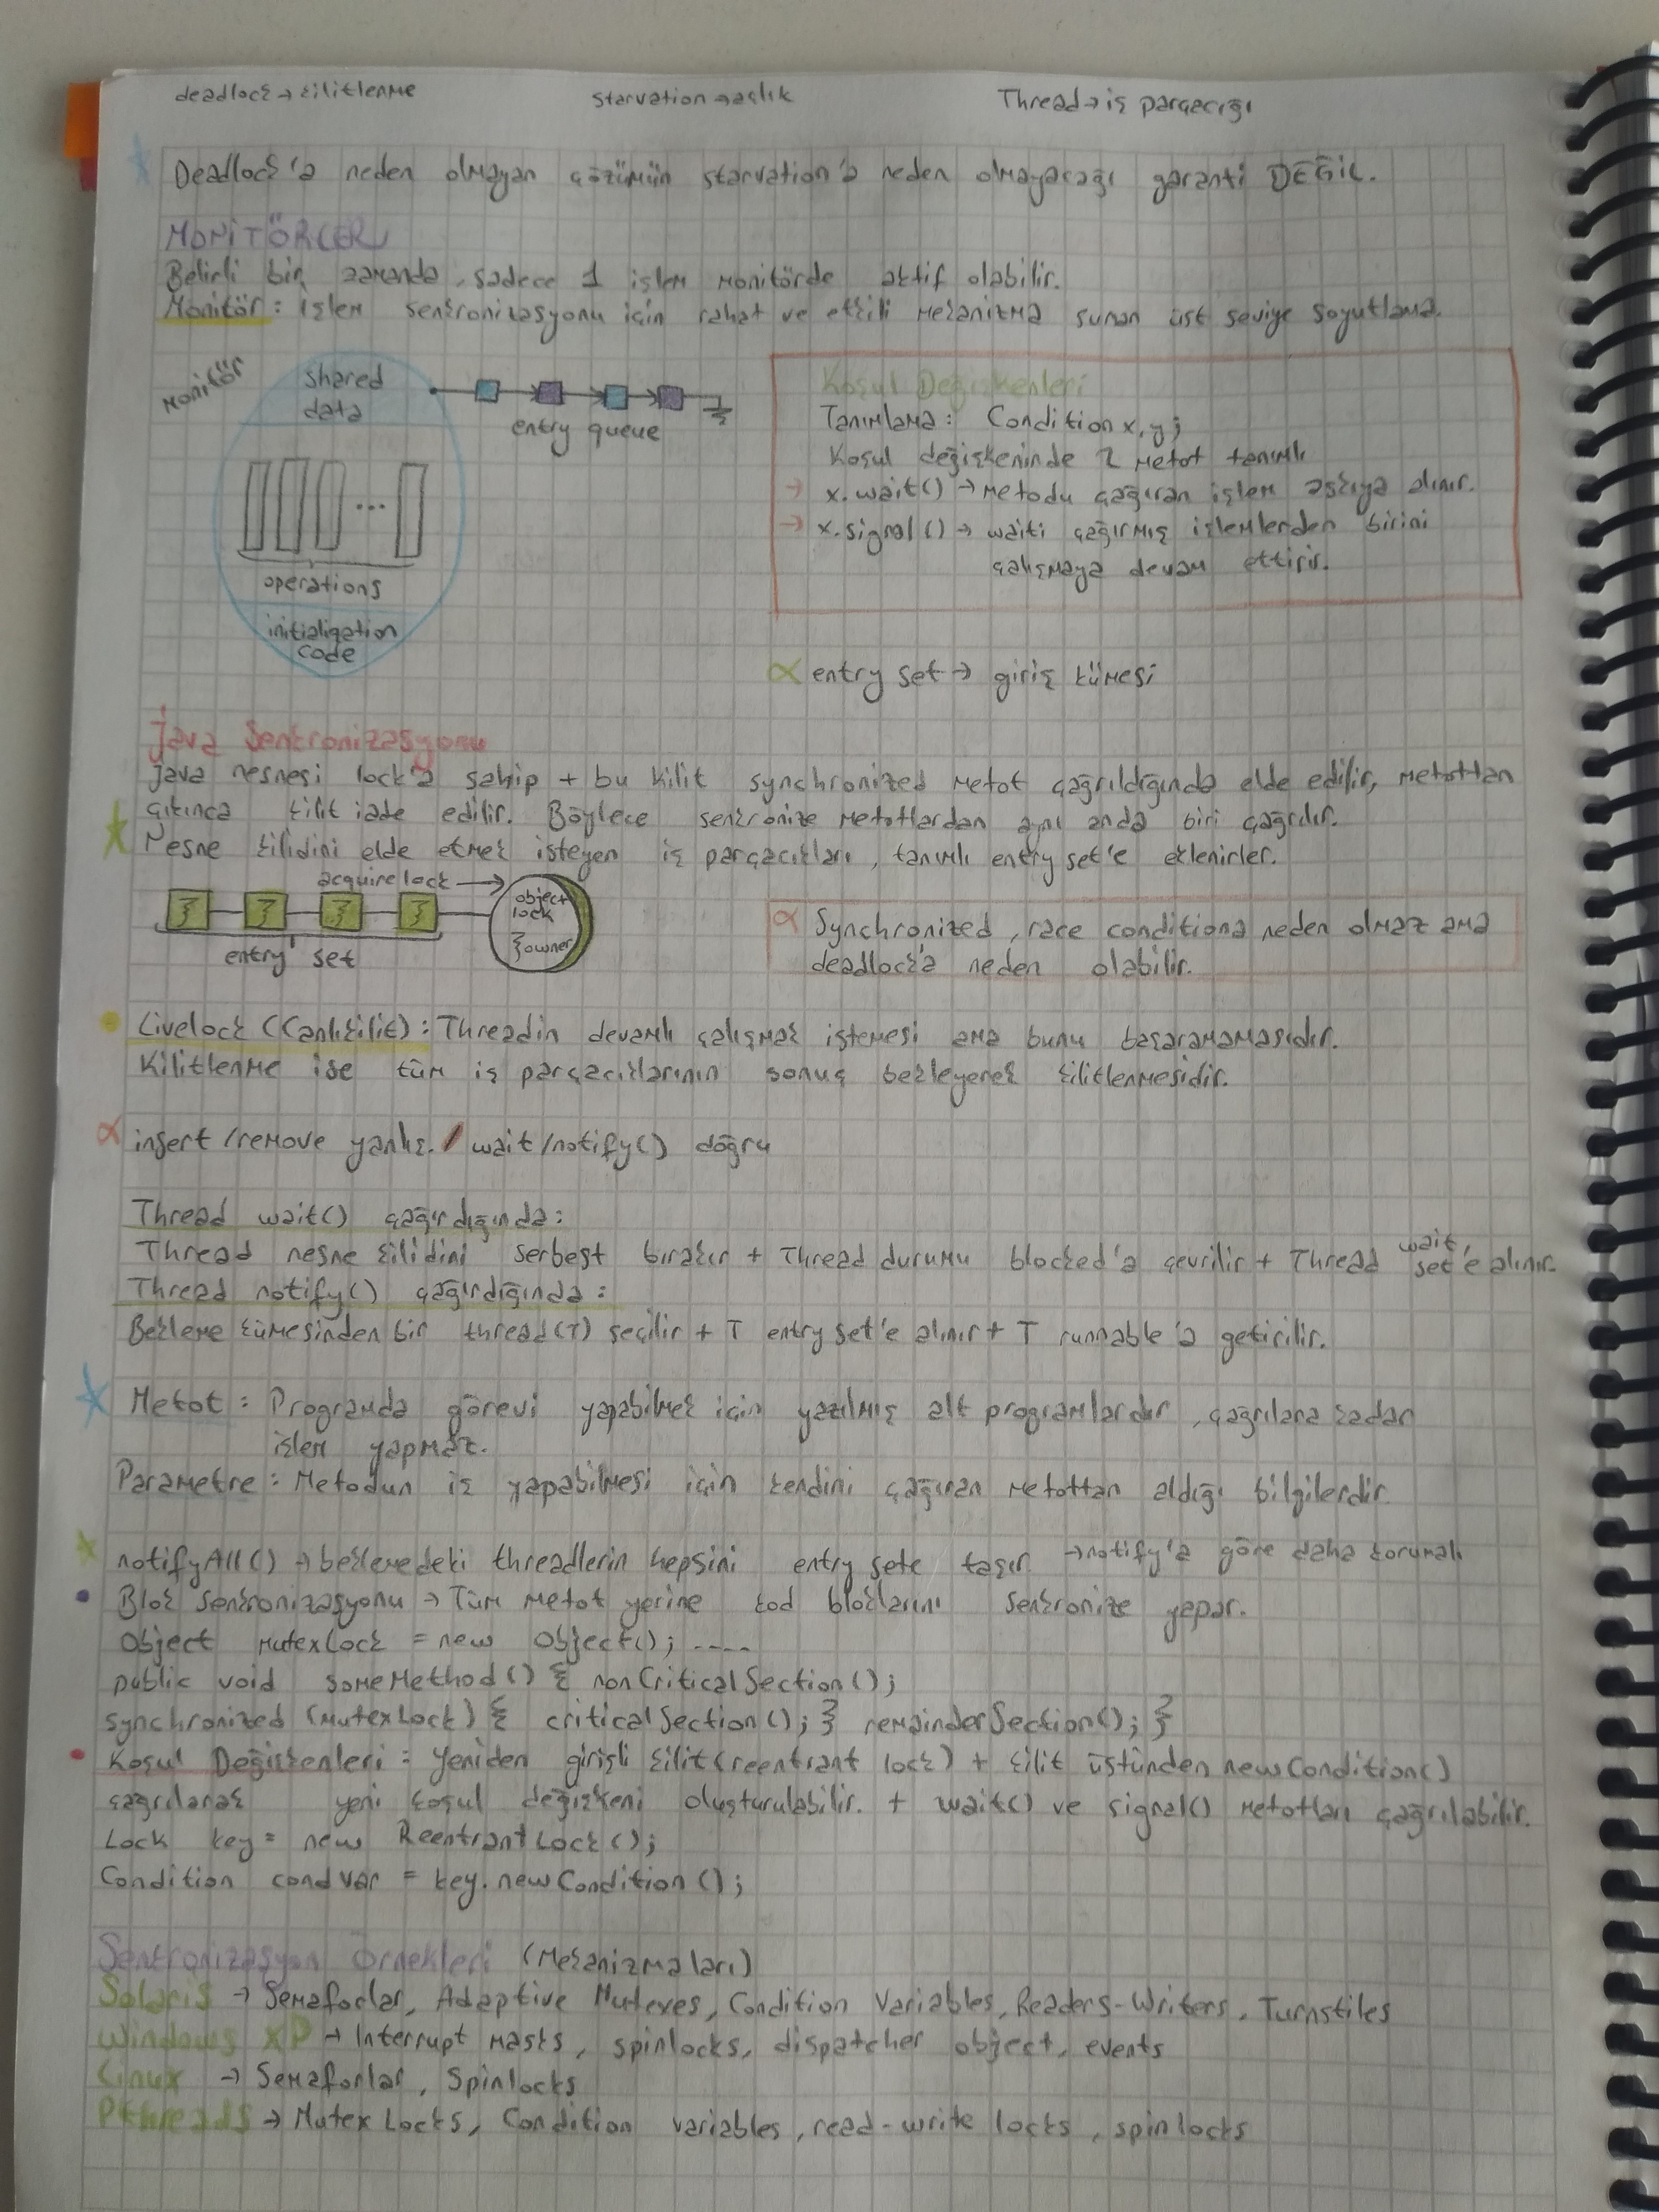 deadlock→kilitlenme    starvation→açlık    Thread→iş parçacığı
Deadlock'a neden olmayan çözümün starvation'a neden olmayacağı garanti DEĞİL.
MONİTÖRLER
Belirli bir zamanda, sadece 1 işlem monitörde aktif olabilir.
Monitör: işlem senkronizasyonu için rahat ve etkili mekanizma sunan üst seviye soyutlama.
monitör
shared
data
entry queue
...
operations
initialization
code
Koşul Değişkenleri
Tanımlama: Condition x,y;
Koşul değişkeninde 2 metot tanımlı
→ x.wait() → metodu çağıran işlem askıya alınır.
→ x.signal() → waiti çağırmış işlemlerden birini
çalışmaya devam ettirir.
α entry set → giriş kümesi
Java Senkronizasyonu
Java nesnesi lock'a sahip + bu kilit synchronized metot çağrıldığında elde edilir, metottan
çıkınca kilit iade edilir. Böylece senkronize metotlardan aynı anda biri çağrılır.
Nesne kilidini elde etmek isteyen iş parçacıkları, tanımlı entry set'e eklenirler.
acquire lock →
object
lock
owner
entry set
α Synchronized, race conditiona neden olmaz ama
deadlock'a neden olabilir.
Livelock (Canlıkilit): Threadin devamlı çalışmak istemesi ama bunu başaramamasıdır.
Kilitlenme ise tüm iş parçacıklarının sonuç bekleyerek kilitlenmesidir.
α insert/remove yanlış. / wait/notify() doğru
Thread wait() çağırdığında:
Thread nesne kilidini serbest bırakır + Thread durumu blocked'a çevrilir + Thread wait set'e alınır.
Thread notify() çağırdığında:
Bekleme kümesinden bir thread(T) seçilir + T entry set'e alınır + T runnable'a getirilir.
Metot: Programda görevi yapabilmek için yazılmış alt programlardır, çağrılana kadar
işlem yapmaz.
Parametre: Metodun iş yapabilmesi için kendini çağıran metottan aldığı bilgilerdir.
notifyAll() → beklemedeki threadlerin hepsini entry sete taşır. → notify'a göre daha korumalı
Blok Senkronizasyonu → Tüm metot yerine kod bloklarını senkronize yapar.
Object mutexLock = new Object(); ----
public void someMethod() { nonCriticalSection();
synchronized (mutexLock) { criticalSection(); } remainderSection(); }
Koşul Değişkenleri: Yeniden girişli kilit (reentrant lock) + kilit üstünden newCondition()
çağrılarak yeni koşul değişkeni oluşturulabilir. + wait() ve signal() metotları çağrılabilir.
Lock key = new ReentrantLock();
Condition condVar = key.newCondition();
Senkronizasyon Örnekleri (Mekanizmaları)
Solaris → Semaforlar, Adaptive Mutexes, Condition Variables, Readers-Writers, Turnstiles
Windows XP → Interrupt masks, spinlocks, dispatcher object, events
Linux → Semaforlar, Spinlocks
Pthreads → Mutex Locks, Condition variables, read-write locks, spin locks